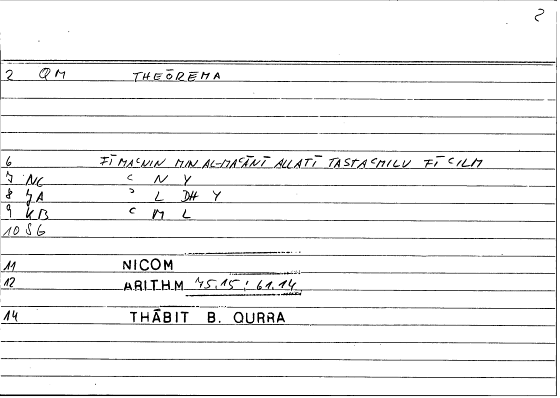 2
2 QM THEŌREMA
6 FĪ MAʿNIN MIN AL-MAʿĀNĪ ALLATĪ TASTAʿMILU FĪ ʿILM
7 NC ʿ N Y
8 JA ʾ L DH Y
9 KB ʿ M L
10 SG
11 NICOM
12 ARITHM 75.15 ; 61.14
14 THĀBIT B. QURRA